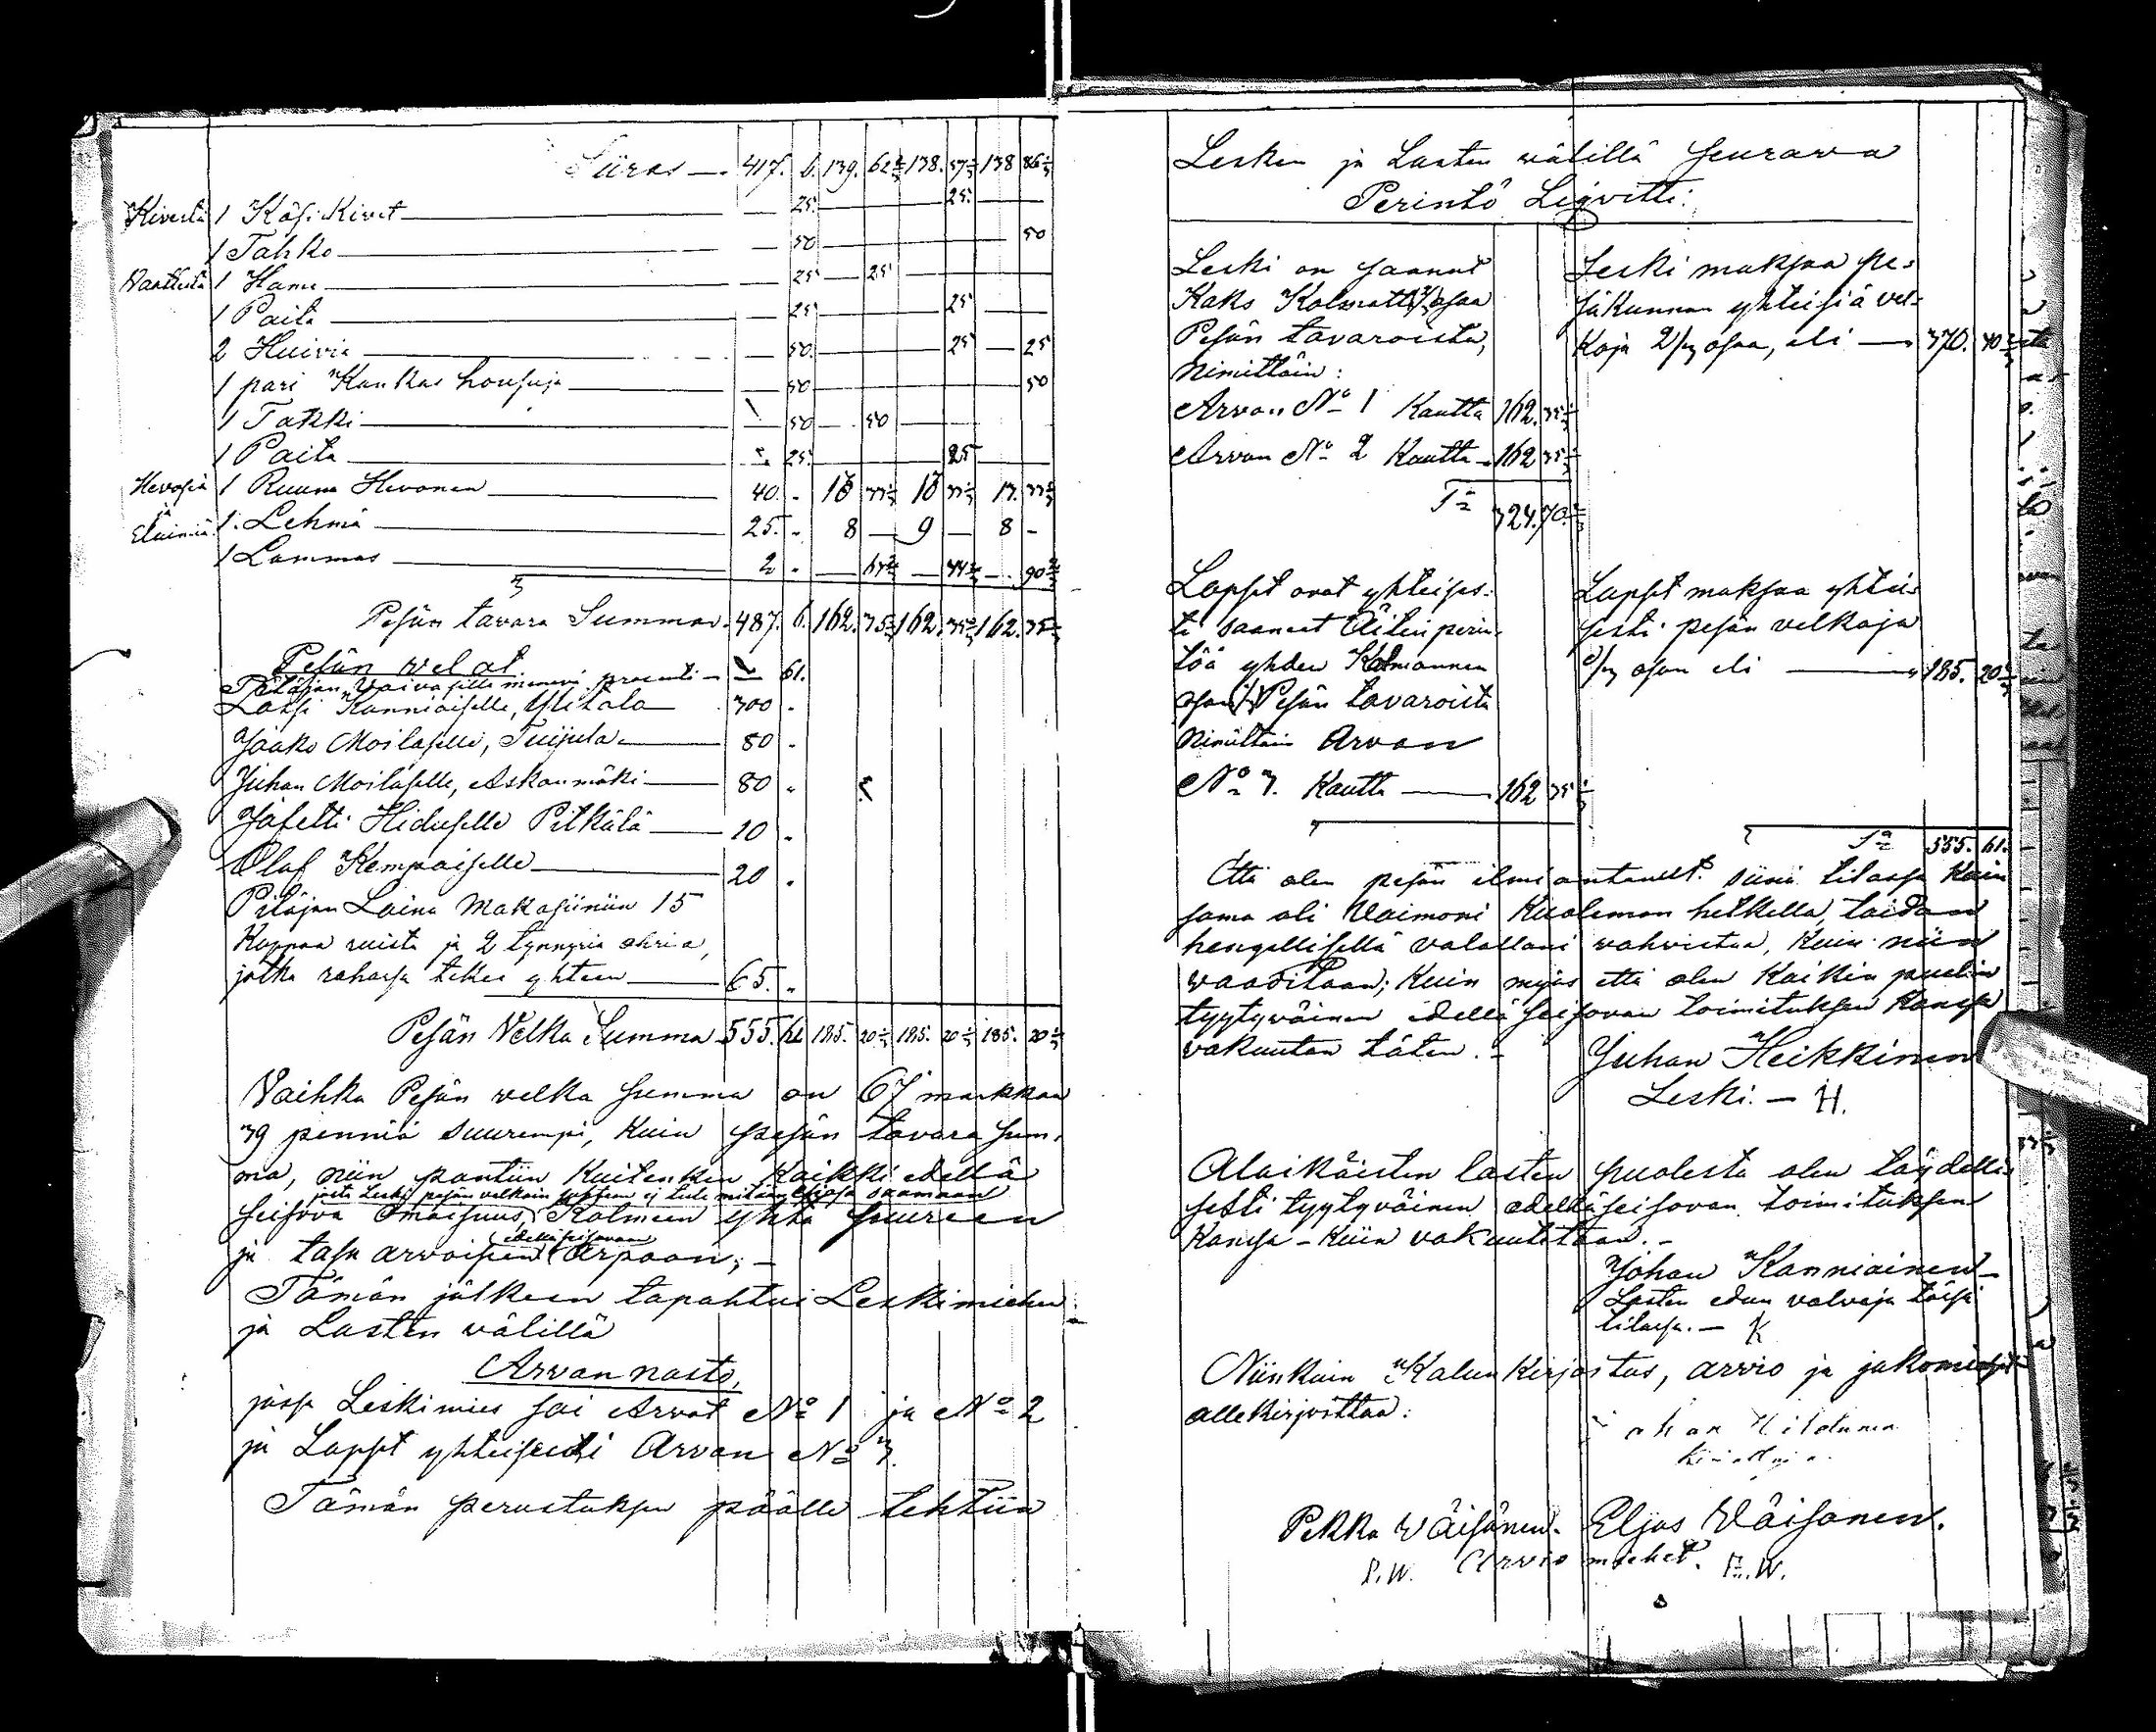 Siiras — 417. 6. 139. 62 2/3 138. 57 2/3 138 86 2/3
Kivestä 1 Käsi Kivet — 25. 25.
1 Tahko — 50 50
Vaatteita 1 Hame — 25 25
1 Paita — 25 25
2 Huivia — 50. 25 25
1 pari Kankas housuja — 50 50
1 Takki — 50 50
1 Paita — 25. 25
Hevosia 1 Ruuna Hevonen — 40. -
ja
Eläimiä 1. Lehmä — 25. - 8 — 9 — 8 -
1 Lammas — 2 -
Pesän tavara Summa. 487. 6. 162. 35 1/3 162. 35 1/3 162. 35 1/3
Pesän welat
Pitäjän Vaivasille menevi prosenti — 61.
Lassi Kanniaiselle, Ylitalo 300 -
Jaako Moilaselle, Tuijula — 80 -
Juhan Moilaselle, Askanmäki — 80 -
Jafetti Hiduselle Pitkälä — 10 -
Olaf Kempaiselle — 20 -
Pitäjan Laina Makasiiniin 15
Kappaa ruista ja 2 tynnyriä ohria,
jotka rahassa tekee yhteen — 65. -
Pesän Velka Summa 555. 61. 185. 20 1/3 185. 20 1/3 185. 20 1/3
Vaihka Pesän welka summa on 67 markkaa
39 penniä suurempi, Kuin pesän tavara sum-
ma, niin pantiin Kuitenkin Kaikki edellä
josta Leski pesän velkain suhteen ej tule mitään etua saamaan
seisova Omaisuus, Kolmeen yhtä suureen
edelläseisovaan
ja tasa arvoiseen Arpaan; -
Tämän jälkeen tapahtui Leskimiehen
ja Lasten wälillä
Arvan nosto,
jossa Leskimies sai Arvat No 1 ja No 2
ja Lapset yhteisesti Arvan No 3.
Tämän perustuksen päälle tehtiin
Lesken ja Lasten wälillä seurava
Perintö Liqvitti:
Leski on saanut
Kaks Kolmatta 2/3 osaa
Pesän tavaroista,
Nimittäin:
Arvan No 1 Kautta 162. 35 1/3
Arvan No 2 Kautta - 162 35 1/3
Sa 324. 70 2/3
Leski maksaa pe-
säkunnan yhteisiä vel-
Koja 2/3 osaa, eli — 370. 40 2/3
Lapset ovat yhteises-
ti saaneet Äitin perin-
töä yhden Kolmannen
osan 1/3 Pesän tavaroista
Nimittäin Arvan
No 3. Kautta — 162 35 1/3
Lapset maksaa yhtei-
sesti pesän velkoja
1/3 osan eli — 185. 20 1/3
Sa 555. 61.
Että olen pesän ilmiantanut siinä tilassa Kuin
sama oli Vaimoni Kuoleman hetkellä, taidan
hengellisellä valallani wahvistaa, Kuin niin
waaditaan; Kuin myös että olen Kaikin puolin
tyytyväinen edelläseisovan toimituksen Kanssa
vakuutan täten. -
Juhan Heikkinen
Leski. - H.
Alaikäisten lasten puolesta olen täydelli-
sesti tyytyväinen edelläseisovan toimituksen
Kanssa - Kuin vakuutetaan. -
Johan Kanniainen -
Lasten edun valvoja täisä
tilassa. - K
Niinkuin Kalunkirjoitus, arvio ja jakomiehet
allekirjoittaa:
Pekka Wäisänen. Eljas Väisänen.
P.W. Arvio miehet. E.W.